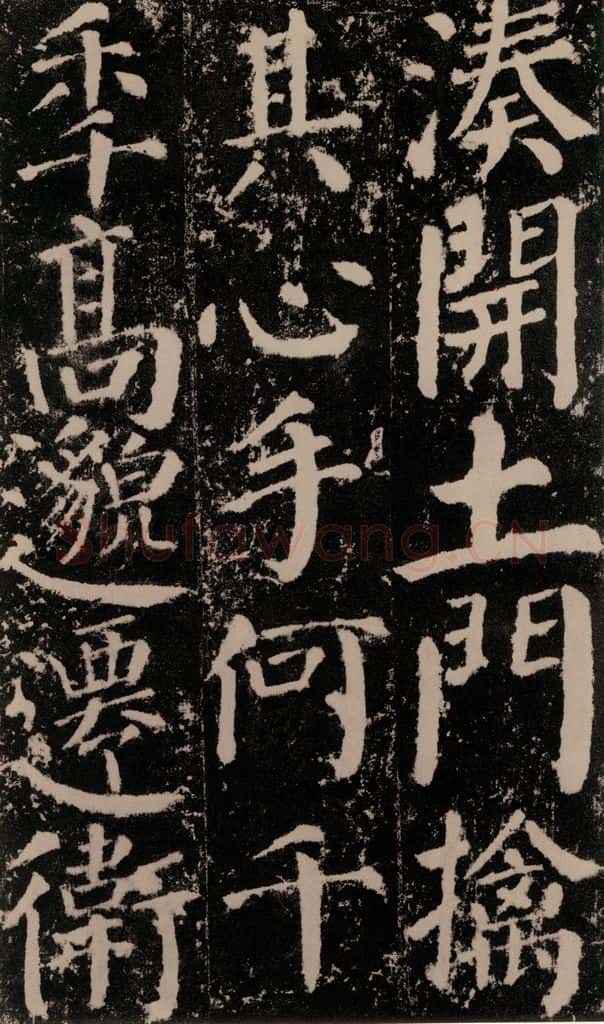 湊開土門擒
其心手何千
年高邈遷衛
shufawang.CN